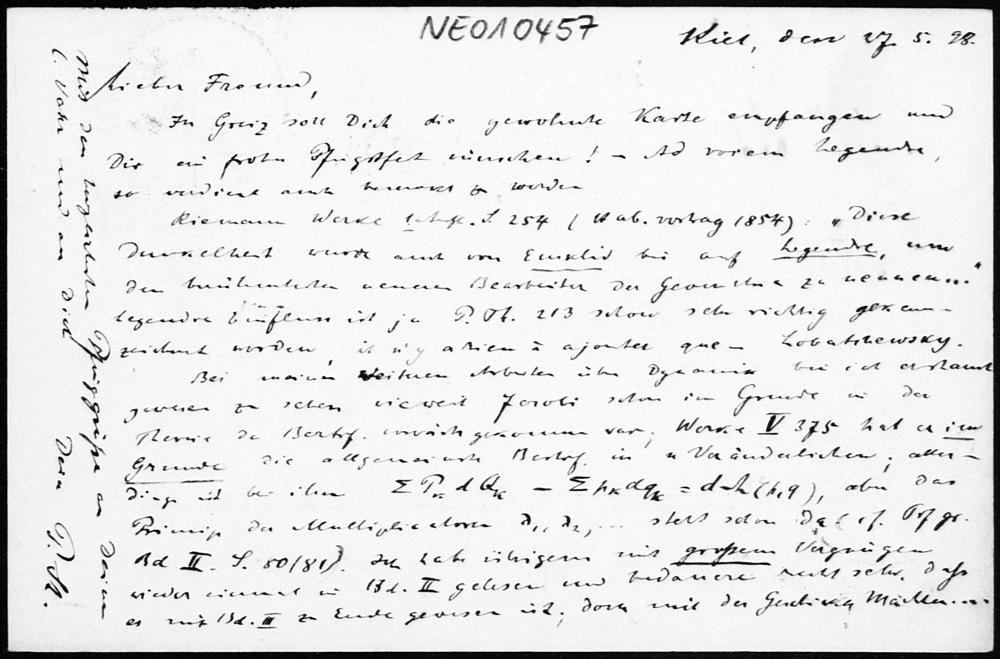 NEO10457
Kiel, den 27. 5. 98.
Lieber Freund,
In Greiz soll Dich die gewohnte Karte empfangen und
Dir ein frohes Pfingstfest wünschen! – Ad vocem Legendre,
so verdient auch bemerkt zu werden
Riemann Werke 1. Aufl. S. 254 (Hab. vortrag 1854): „Diese
Dunkelheit wurde auch von Euklid bis auf Legendre, um
den berühmtesten neueren Bearbeiter der Geometrie zu nennen..."
Legendres Einfluss ist ja P. Th. 213 schon sehr richtig gekenn-
zeichnet worden, il n'y a rien à ajouter que – Lobatschewsky.
Bei meinen weiteren Arbeiten über Dynamik bin ich erstaunt
gewesen zu sehen wie weit Jacobi schon im Grunde in der
Theorie der Berhtf. vorwärts gekommen war; Werke V 375 hat er im
Grunde die allgemeinste Berhtf. in n Veränderlichen, aller-
dings ist bei ihm ΣPκ dQκ – Σpκ dqκ = dΩ(p,q), aber das
Princip der Multiplicatoren λ₁, λ₂, ... steht schon da (cf.
Bd II. S. 80/81). Ich habe übrigens mit großem Vergnügen
wieder einmal in Bd. II gelesen und bedauere recht sehr, daß
es mit Bd. III zu Ende gewesen ist; doch mit des Geschickes Mächten....
Mit den herzlichsten Pfingstgrüßen an Deinen
l. Vater und an Dich Dein P. St.